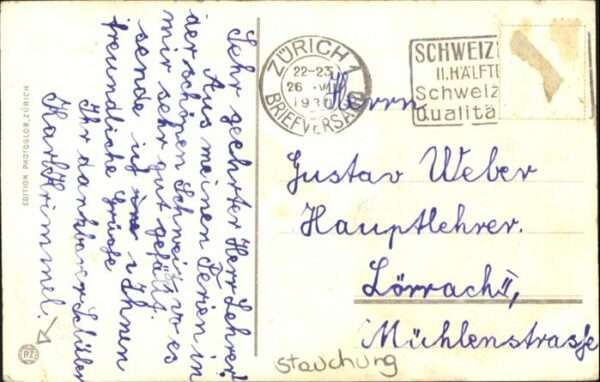 Sehr geehrter Herr Lehrer!
Aus meinen Ferien in
der schönen Schweiz, wo es
mir sehr gut gefällt.
sende ich ine i Ihnen
freundliche Grüsse
Ihr dankbarer Schüler
Karl Krimmel.
EDITION PHOTOGLOB, ZÜRICH
PZ
ZÜRICH 1
22-23
26. VII
BRIEFVERSAND
SCHWEIZ
II. HÄLFTE
Schweiz
Qualitä
Herrn
Gustav Weber
Hauptlehrer.
Lörrach,
Mühlenstrasse
Stauchung